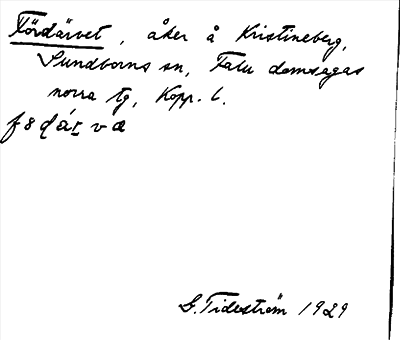 Fördärvet, åker å Kristineberg,
Sundborns sn, Falu domsagas
norra tg, Kopp. l.
f8dárva
G. Tideström 1929